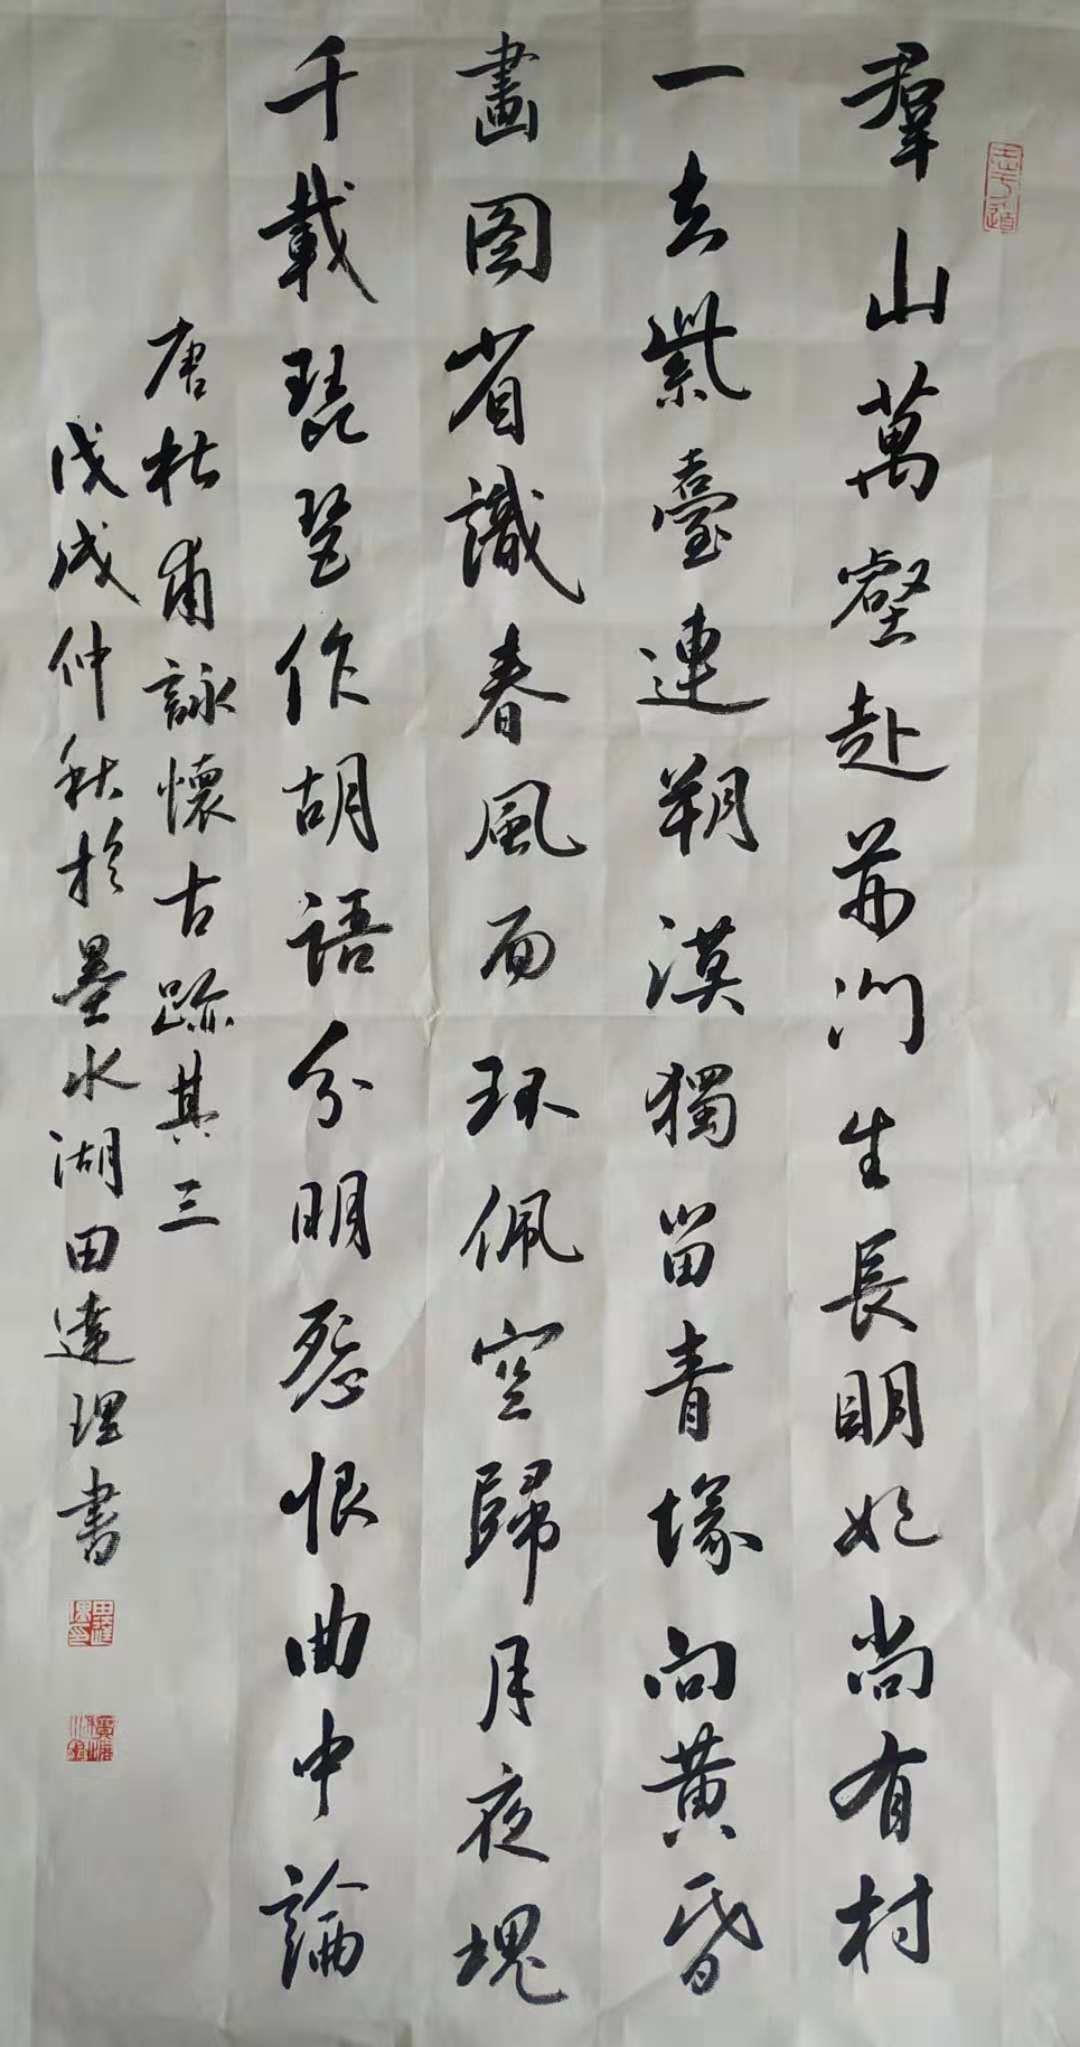 羣山萬壑赴荆門生長明妃尚有村
一去紫臺連朔漠獨留青塚向黃昏
畫图省識春風面环佩空歸月夜魂
千載琵琶作胡語分明怨恨曲中論
唐杜甫詠懷古跡其三
戊戌仲秋於墨水湖田達理書